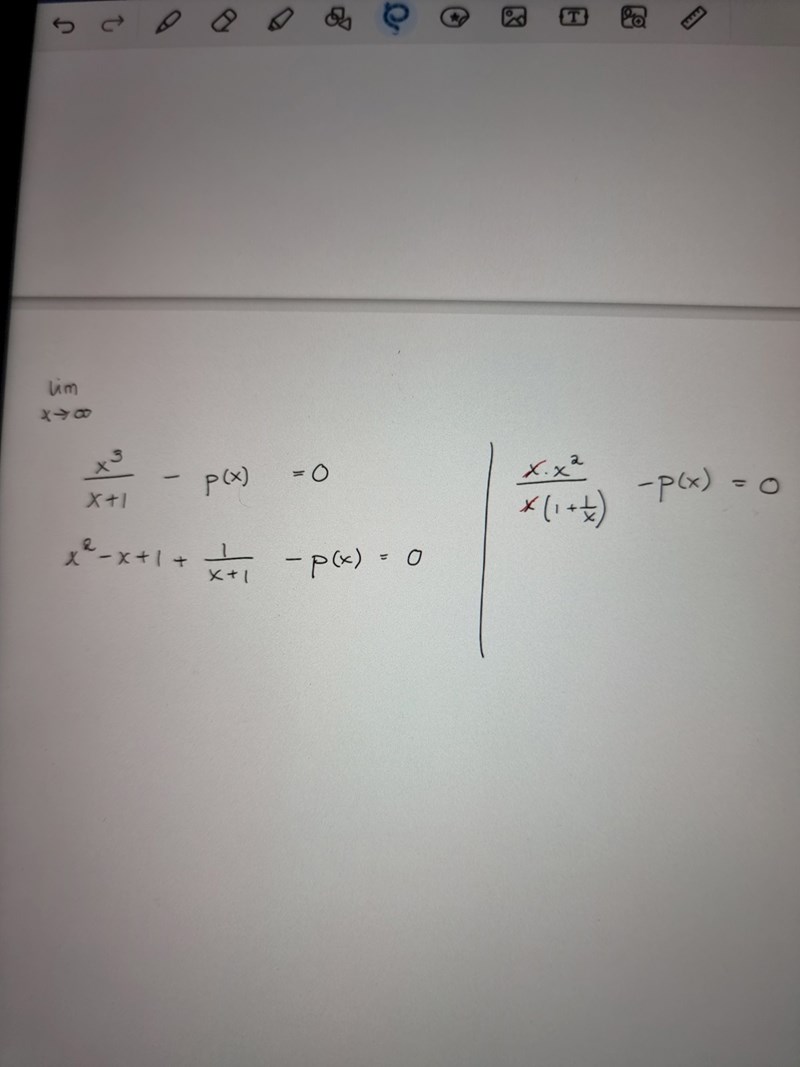 lim
x→∞
x³/(x+1) - p(x) = 0
x² - x + 1 + 1/(x+1) - p(x) = 0
x·x²/(x(1+1/x)) - p(x) = 0